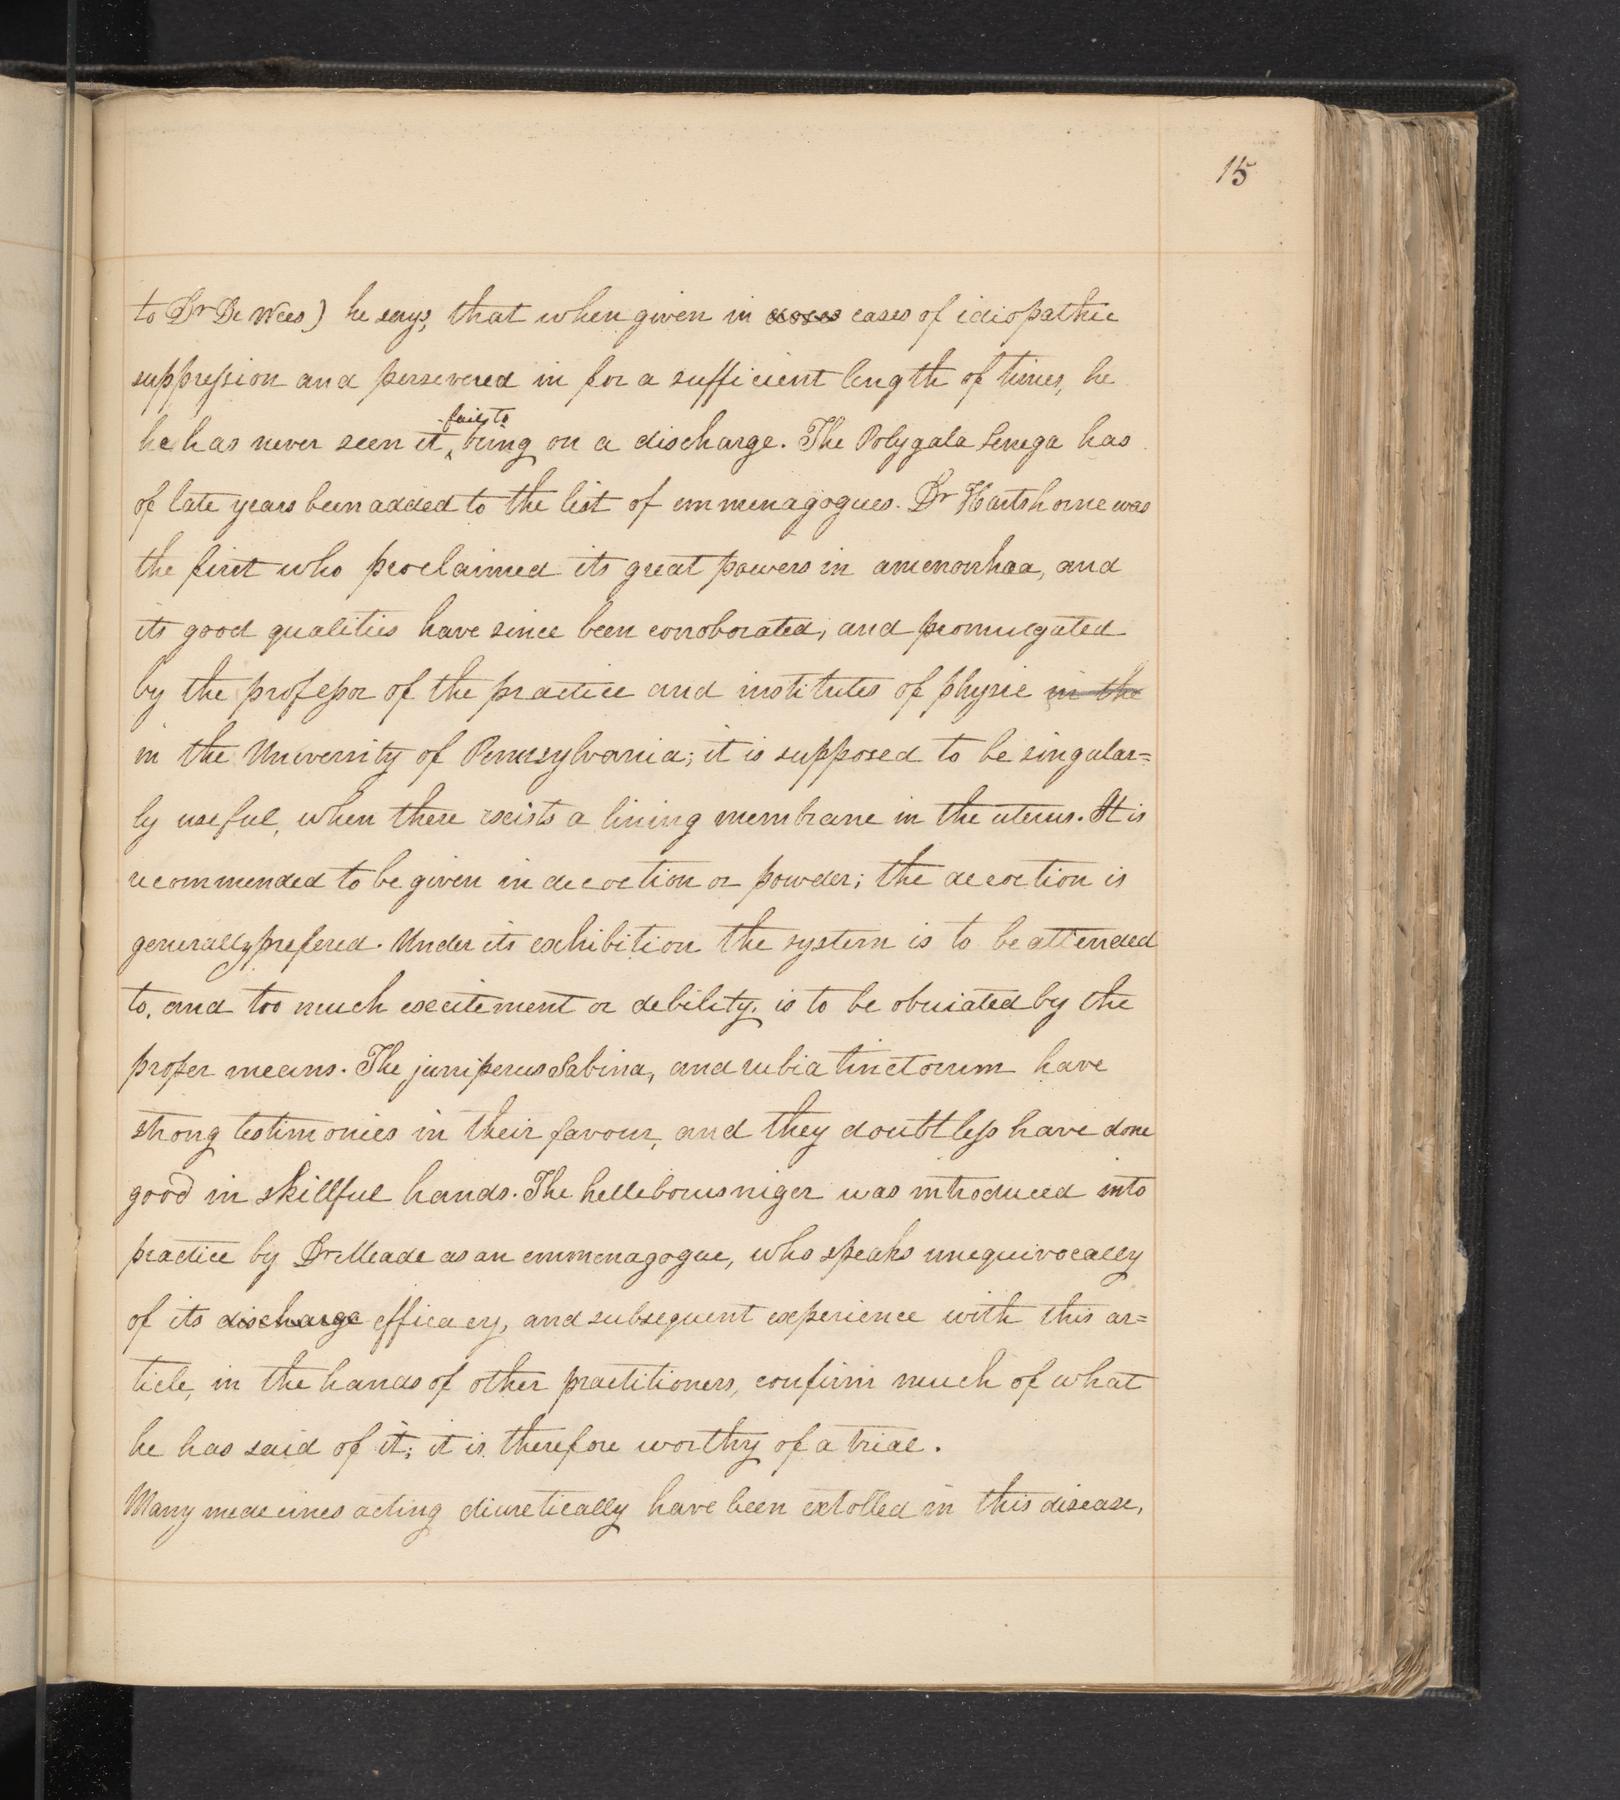 15
to Dr De Wees) he says, that when given in doses cases of idiopathic
suppression and persevered in for a sufficient length of times, he
he has never seen it fail to bring on a discharge. The Polygala Senega has
of late years been added to the list of emmenagogues. Dr Hartshorne was
the first who proclaimed its great powers in amenorrhaa, and
its good qualities have since been corroborated, and promulgated
by the professor of the practice and institutes of physic in the
in the University of Pennsylvania; it is supposed to be singular=
ly useful, when there exists a lining membrane in the uterus. It is
recommended to be given in decoction or powder; the decoction is
generally prefered. Under its exhibition the system is to be attended
to, and too much excitement or debility, is to be obviated by the
proper means. The juniperus Sabina, and rubia tinctorum have
strong testimonies in their favour, and they doubtless have done
good in skillful hands. The helleborus niger was introduced into
practice by Dr Meade as an emmenagogue, who speaks unequivocally
of its discharge efficacy, and subsequent experience with this ar=
ticle, in the hands of other practitioners, confirm much of what
he has said of it; it is therefore worthy of a trial.
Many medecines acting diuretically have been extolled in this disease,